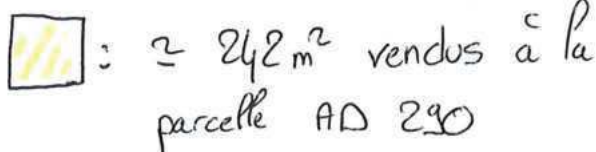 : ≃ 242 m² vendus à la
parcelle AD 290